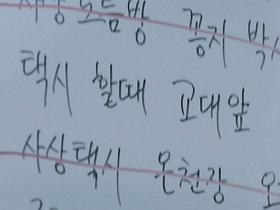 꽁지 박
택시 할때 교대앞
사상택시 온천장